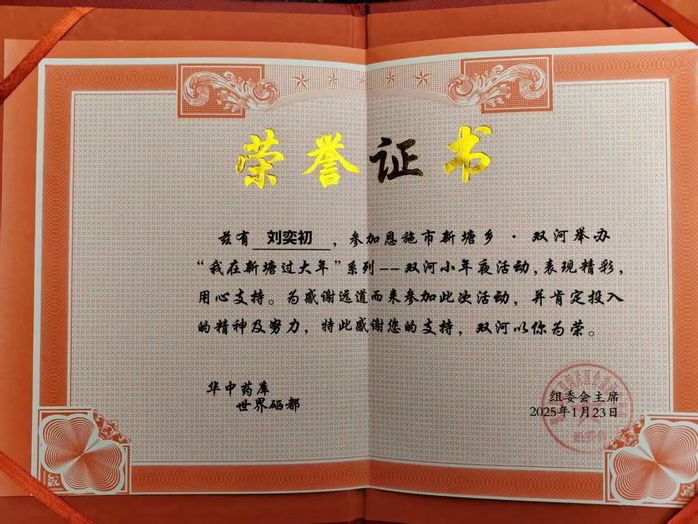 荣誉证书
兹有 刘奕初 ,参加恩施市新塘乡·双河举办
“我在新塘过大年”系列——双河小年夜活动,表现精彩,
用心支持。为感谢远道而来参加此次活动,并肯定投入
的精神及努力,特此感谢您的支持,双河以你为荣。
华中药库
世界硒都
组委会主席
2025年1月23日